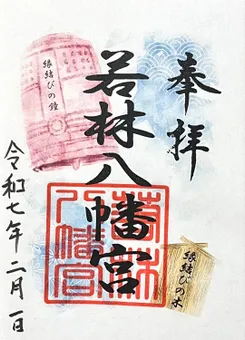 奉拝
縁結びの木
若林八幡宮
若林八幡宮
縁結びの鐘
令和七年二月一日